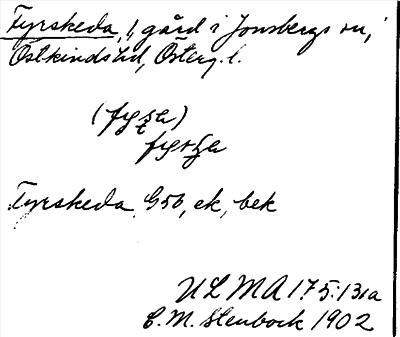 Fyrskeda, 1, gård i Jonsbergs sn,
Östkinds hd, Österg. l.
Fyrskeda G50, ek, bek
ULMA 175:131a
C. M. Stenbock 1902